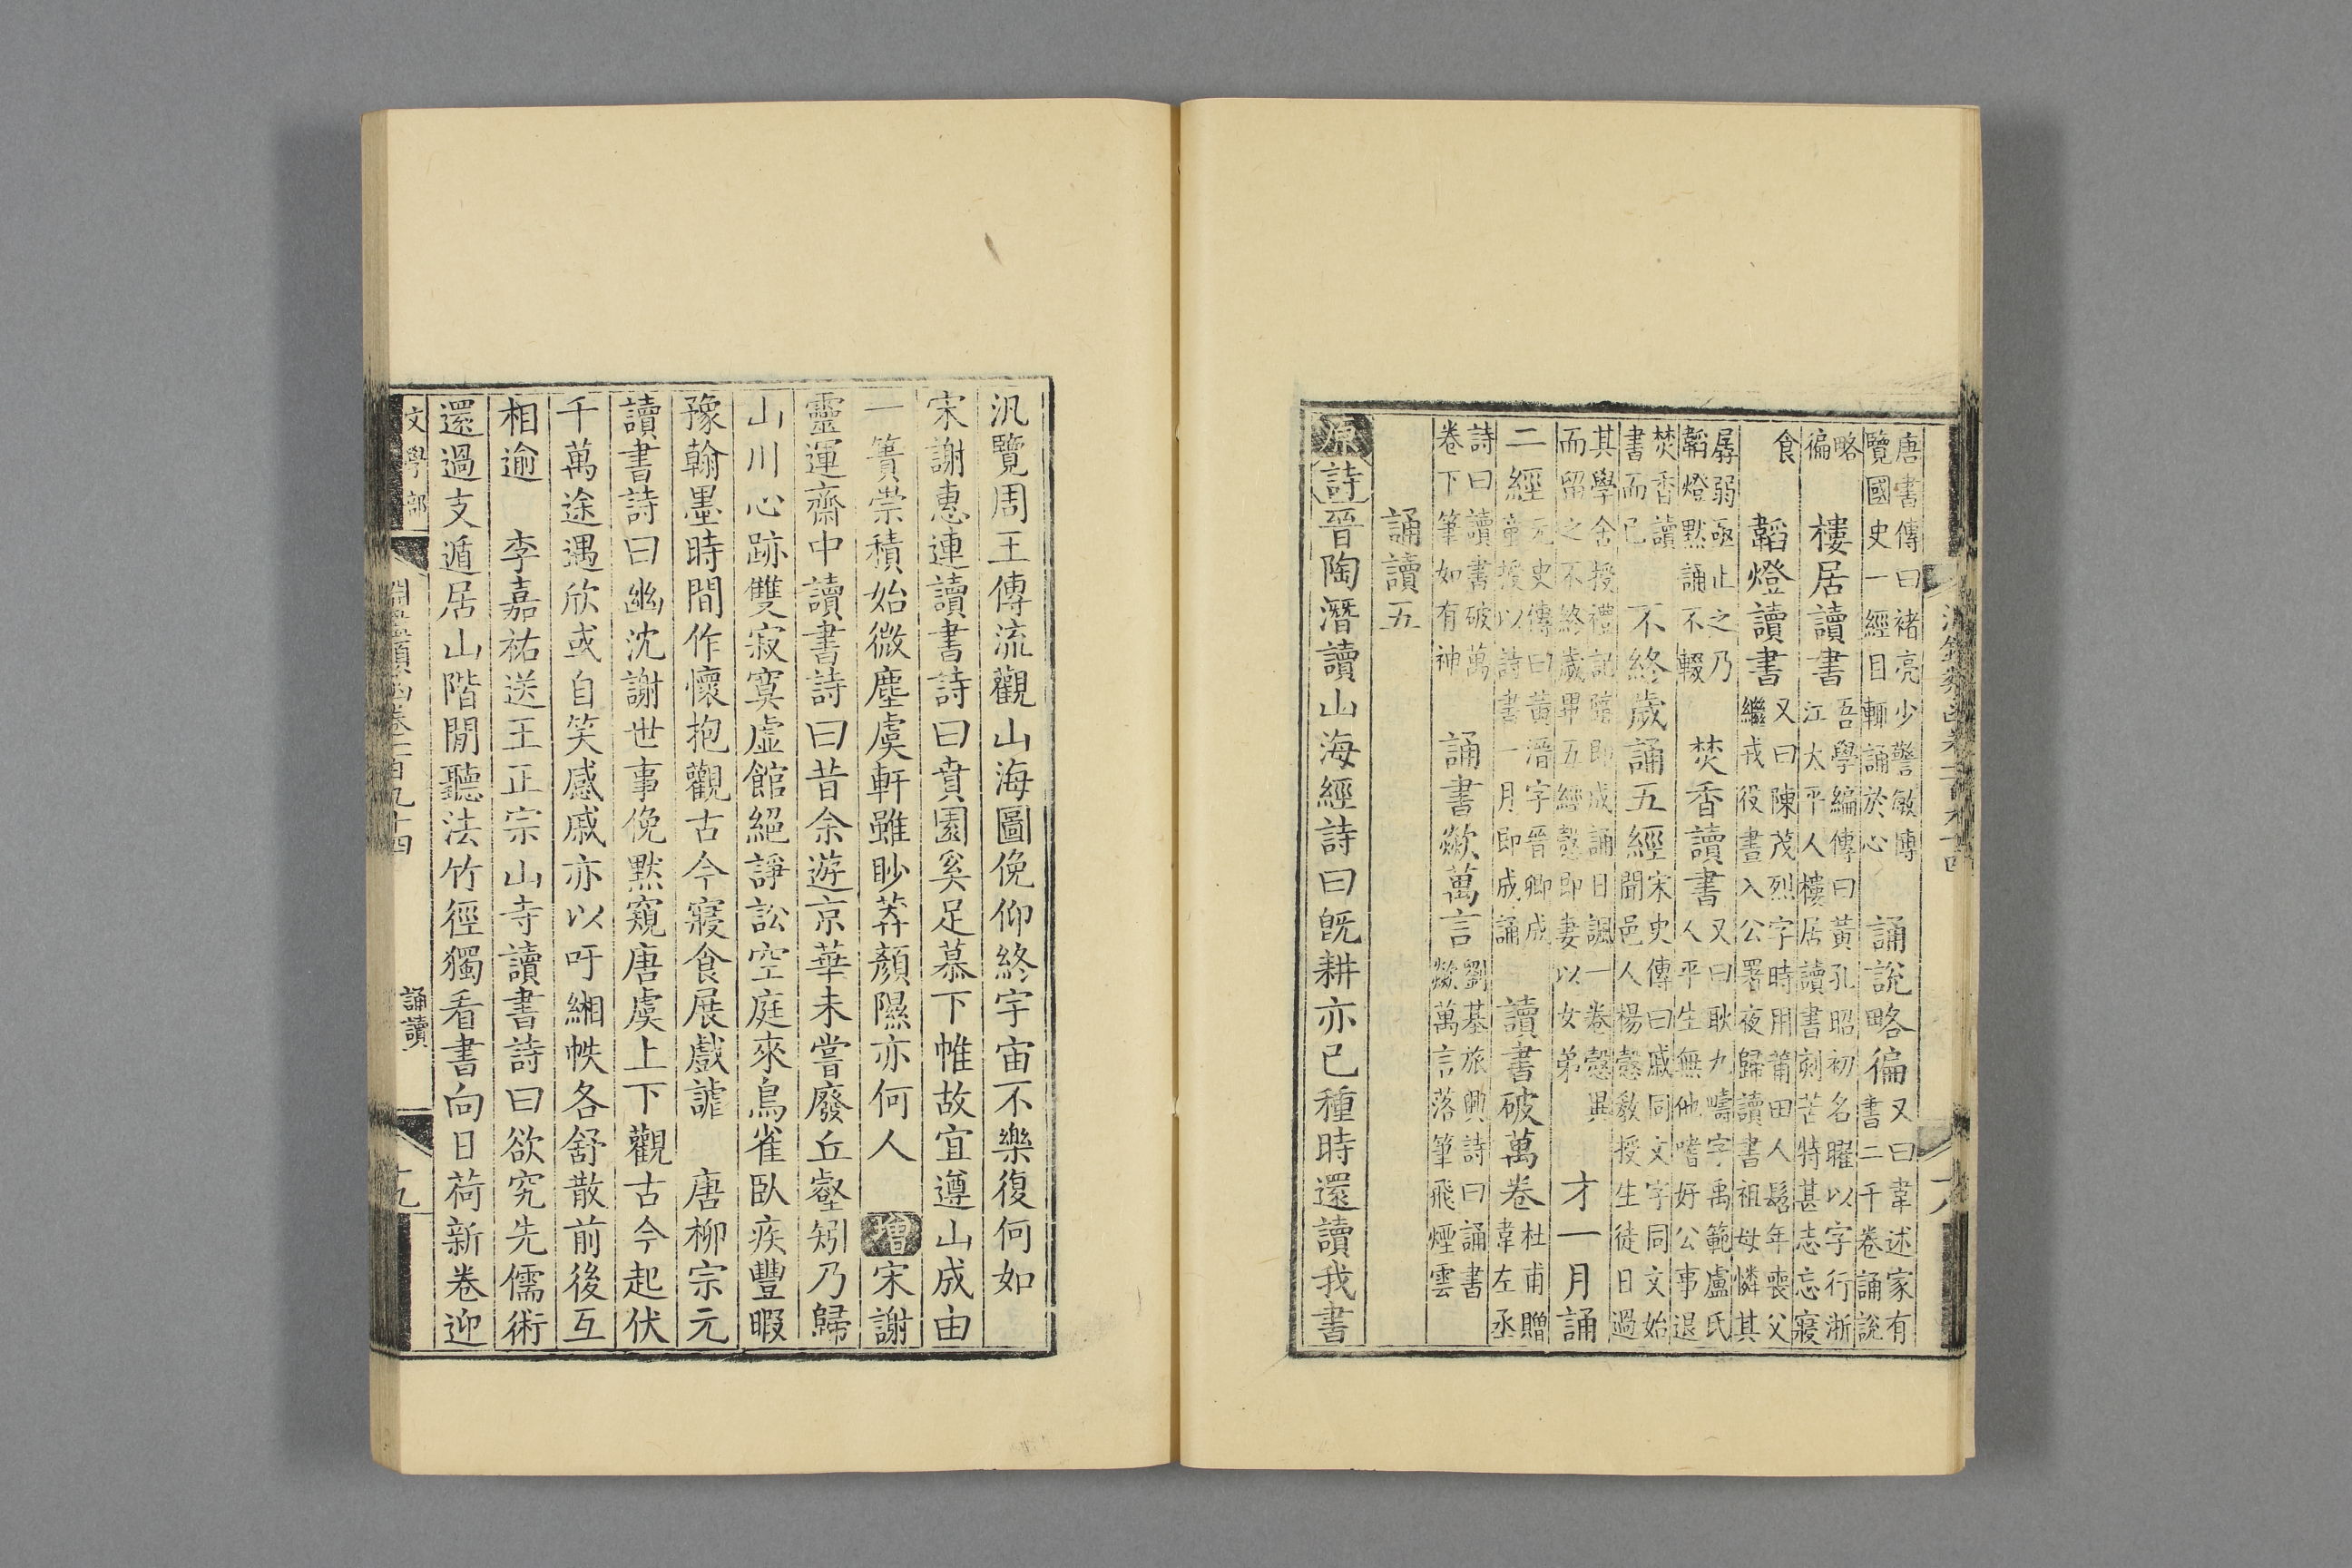 唐書傳曰褚亮少警敏博
覽國史一經目輒誦於心
誦說略徧
又曰韋述家有
書二千卷誦說
略
徧
樓居讀書
吾學編傳曰黃孔昭初名曜以字行浙
江太平人樓居讀書刻苦特甚志忘寢
食
韜燈讀書
又曰陳茂烈字時用莆田人髫年喪父
繼戎役晝入公署夜歸讀書祖母憐其
孱弱亟止之乃
韜燈默誦不輟
焚香讀書
又曰耿九疇字禹範盧氏
人平生無他嗜好公事退
焚香讀
書而已
不終歲誦五經
宋史傳曰戚同文字同文始
聞邑人楊愨教授生徒日過
其學舍授禮記隨即成誦日諷一卷愨異
而留之不終歲畢五經愨即妻以女弟
才一月誦
二經
元史傳曰黃溍字晉卿成
童授以詩書一月即成誦
讀書破萬卷
杜甫贈
韋左丞
詩曰讀書破萬
卷下筆如有神
誦書歘萬言
劉基旅興詩曰誦書
歘萬言落筆飛煙雲
誦讀五
原詩晉陶潛讀山海經詩曰旣耕亦已種時還讀我書
汎覽周王傳流觀山海圖俛仰終宇宙不樂復何如
宋謝惠連讀書詩曰賁園奚足慕下帷故宜遵山成由
一簣崇積始微塵虞軒雖眇莽顏隰亦何人　增宋謝
靈運齋中讀書詩曰昔余遊京華未嘗廢丘壑矧乃歸
山川心跡雙寂寞虛館絕諍訟空庭來鳥雀臥疾豐暇
豫翰墨時間作懷抱觀古今寢食展戲謔　唐柳宗元
讀書詩曰幽沈謝世事俛默窺唐虞上下觀古今起伏
千萬途遇欣或自笑感戚亦以吁緗帙各舒散前後互
相逾　李嘉祐送王正宗山寺讀書詩曰欲究先儒術
還過支遁居山階閒聽法竹徑獨看書向日荷新卷迎
文學部
淵鑑類函卷二百九十四
誦讀
十九